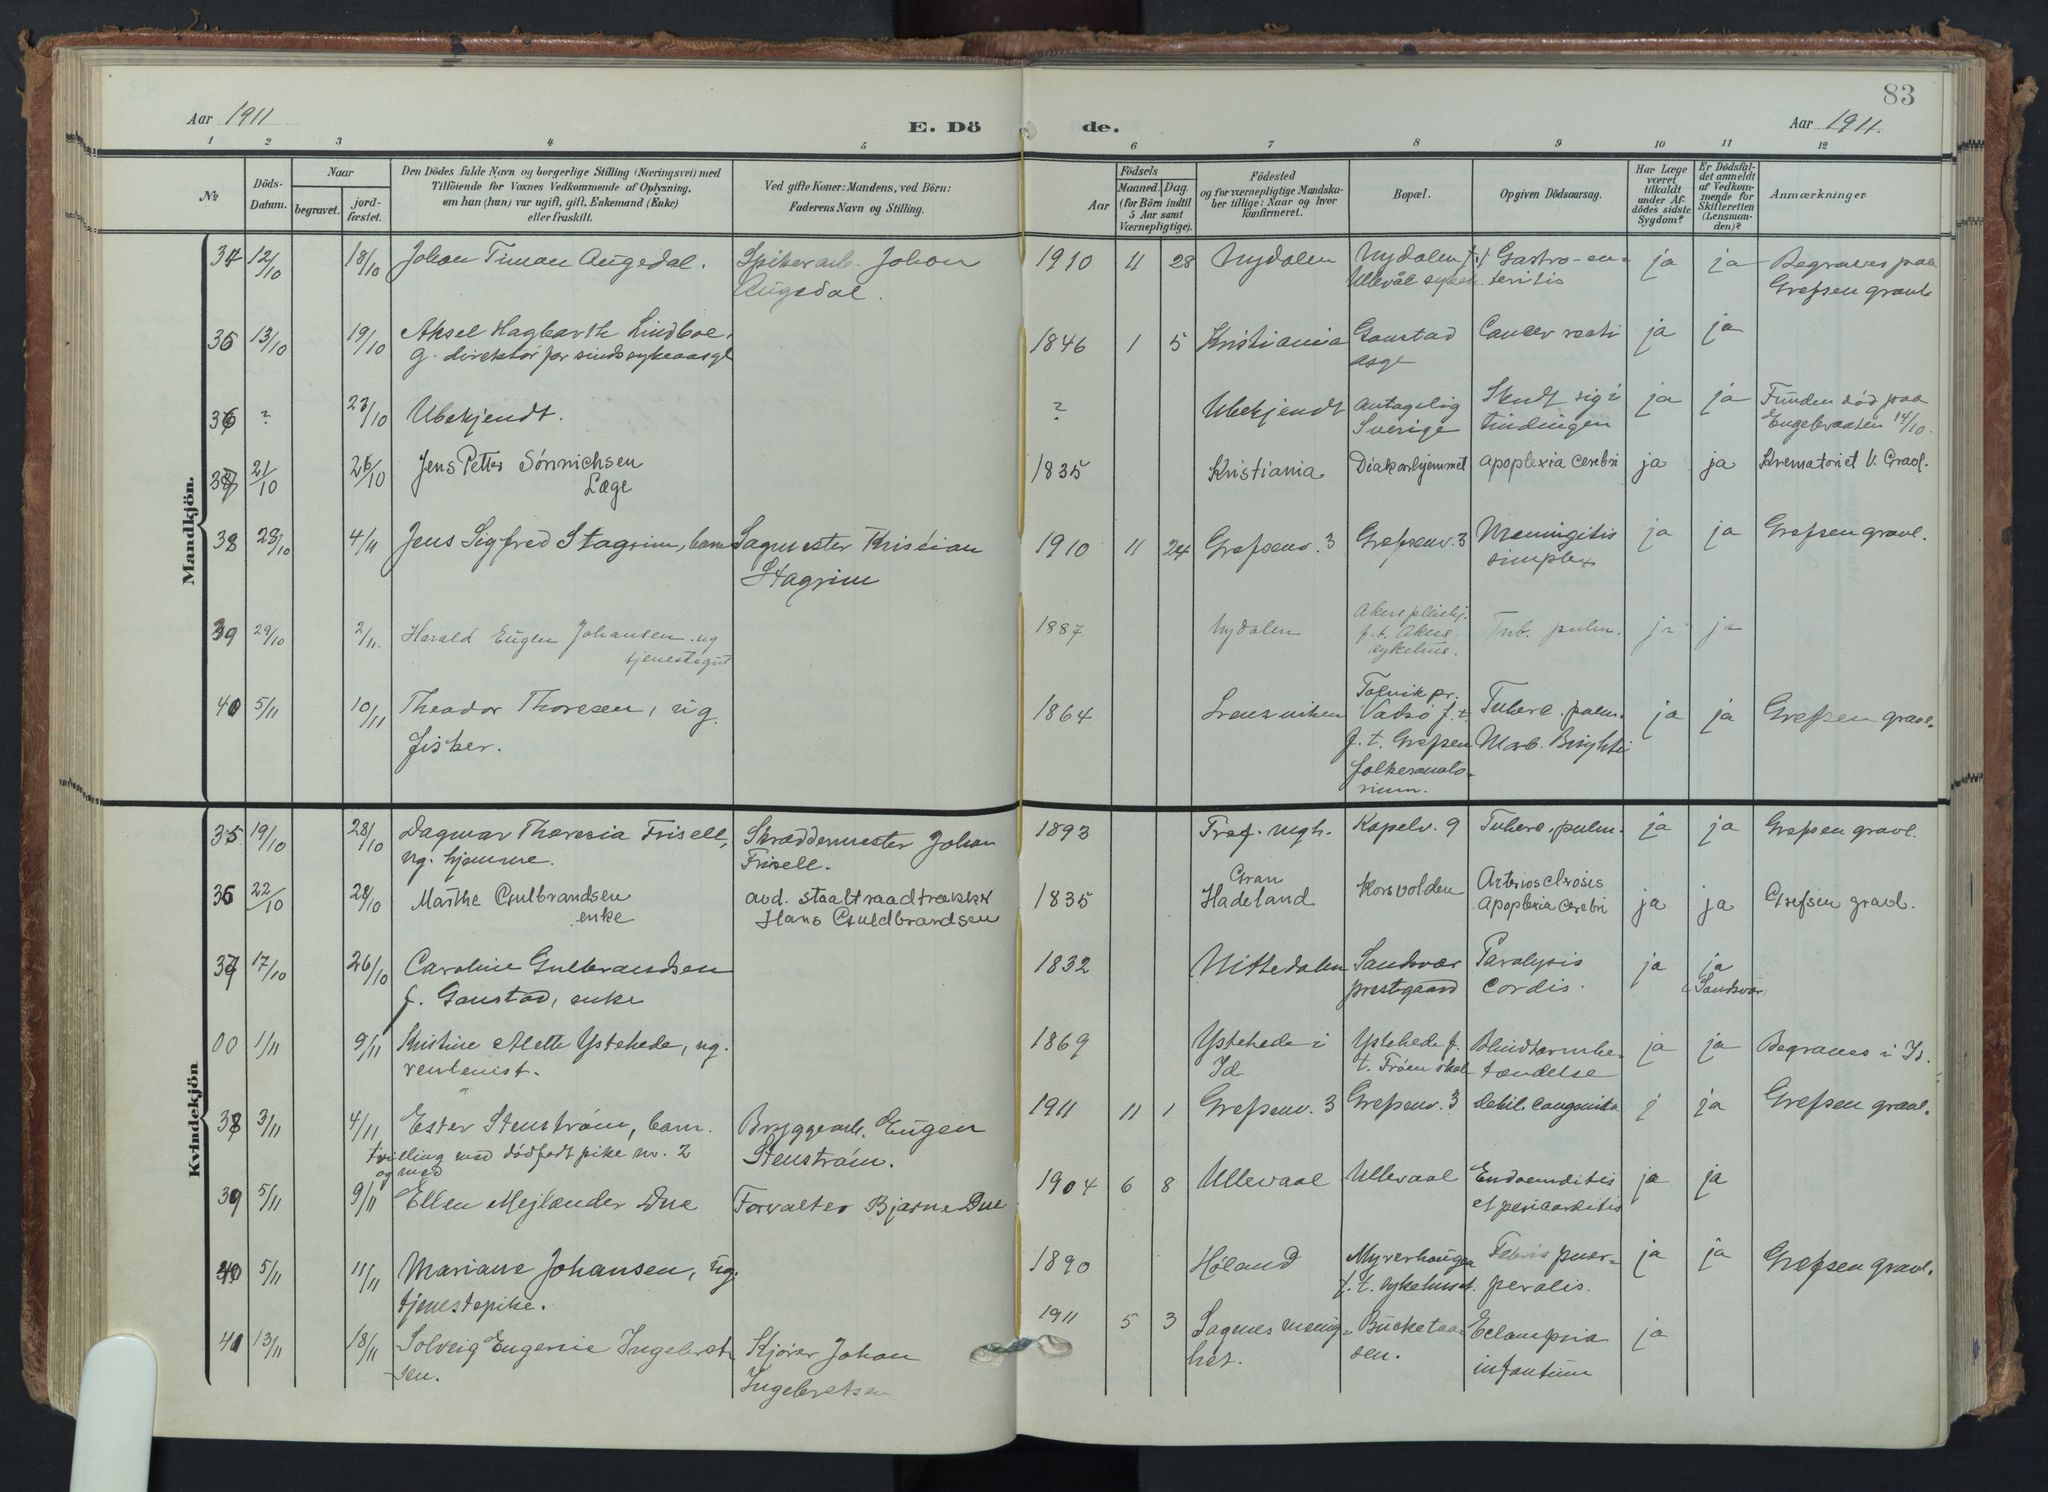 83
Aar 1911
E. Dö
de.
Aar 1911.
1 2 3 4 5 6 7 8 9 10 11 12
No
Döds-
Datum.
Naar
begravet.
jord-
fæstet.
Den Dödes fulde Navn og borgerlige Stilling (Næringsvei) med
Tilföiende for Voxnes Vedkommende af Oplysning,
om han (hun) var ugift, gift, Enkemand (Enke)
eller fraskilt.
Ved gifte Koner: Mandens, ved Börn:
Faderens Navn og Stilling.
Födsels
Aar
Maaned. Dag.
(for Börn indtil
5 Aar samt
Værnepligtige).
Födested
og for værnepligtige Mandska-
ber tillige: Naar og hvor
konfirmeret.
Bopæl.
Opgiven Dödsaarsag.
Har Læge
været
tilkaldt
under Af-
dödes sidste
Sygdom?
Er Dödsfal-
det anmeldt
af Vedkom-
mende for
Skifteretten
(Lensman-
den)?
Anmærkninger
Mandkjön.
34 12/10 18/10 Johan Timan Augedal. Spikerarb. Johan 1910 11 28 Nydalen Nydalen f. t. Gastro-en- ja ja Begraves paa
Augedal. Ullevål sykeh. teritis Grefsen gravl.
35 13/10 19/10 Aksel Hagbarth Lindboe, 1846 1 5 Kristiania Gaustad Cancer recti ja ja
g. direktör for sindssykeasyl asyl
36 ? 23/10 Ubekjendt. ? Ubekjendt antagelig Skudt sig i ja ja Funden död paa
Sverige tindingen 14/10.
37 21/10 26/10 Jens Petter Sönnichsen 1835 Kristiania Diakonhjemmet apoplexia cerebri ja ja Krematoriet V. Gravl.
Læge
38 28/10 4/11 Jens Sigfred Stagrim, barn Sagmester Kristian 1910 11 24 Grefsenv. 3 Grefsenv. 3 Meningitis ja ja Grefsen gravl.
Stagrim simplex
39 29/10 2/11. Harald Eugen Johansen. ug 1887 Nydalen Akers pleiehj. Tub. pulm. ja ja
tjenestegut f. t. Akers
sykehus.
40 5/11 10/11 Theodor Thoresen, ug. 1864 pr. Tuberc. pulm. ja ja Grefsen gravl.
fisker. Vadsö f. t. Morb. Brighti
f. t. Grefsen
folkesanato-
rium.
Kvindekjön
35 19/10 28/10 Dagmar Theresia Frisell, Skræddermester Johan 1893 mgh. Kapelv. 9 Tuberc. pulm. ja ja Grefsen gravl.
ug. hjemme. Frisell.
36 22/10 28/10 Marthe Gulbrandsen avd. staaltraadtrækker 1835 Gran Korsvolden Arteriosclerosis ja ja Grefsen gravl.
enke Hans Guldbrandsen Hadeland Apoplexia cerebri
37 17/10 26/10 Caroline Gulbrandsen 1832 Nittedalen Sandsvær Paralysis ja ja
f. Gaustad, enke prestgaard cordis. (Sandsvær)
00 1/11 9/11 Kristine Mette Ystehede, ug. 1869 Ystehede i Ystehede f. Blindtarmbe- ja ja Begraves i Id.
rentenist. Id t. Fröen skole tændelse
38 3/11 4/11 Ester Stenström, barn. Bryggearb. Eugen 1911 11 1 Grefsenv. 3 Grefsenv. 3 Debil. congenita j ja Grefsen gravl.
tvilling med dödfödt pike nr. 2 Stenström.
og med
39 5/11 9/11 Ellen Mejlænder Due Forvalter Bjarne Due 1904 6 8 Ullevaal Ullevaal Endocarditis ja ja
et pericarditis
40 5/11 11/11 Mariane Johansen, ug. 1890 Höland Myrerhaugen Febris puer- ja ja Grefsen gravl.
tjenestepike. f. t. sykehuset. peralis.
41 13/11 18/11 Solveig Eugenie Ingebret- Kjörer Johan 1911 5 3 Sagenes menig- Bucketaa- Eclampsia ja
sen. Ingebretsen het. sen. infantum